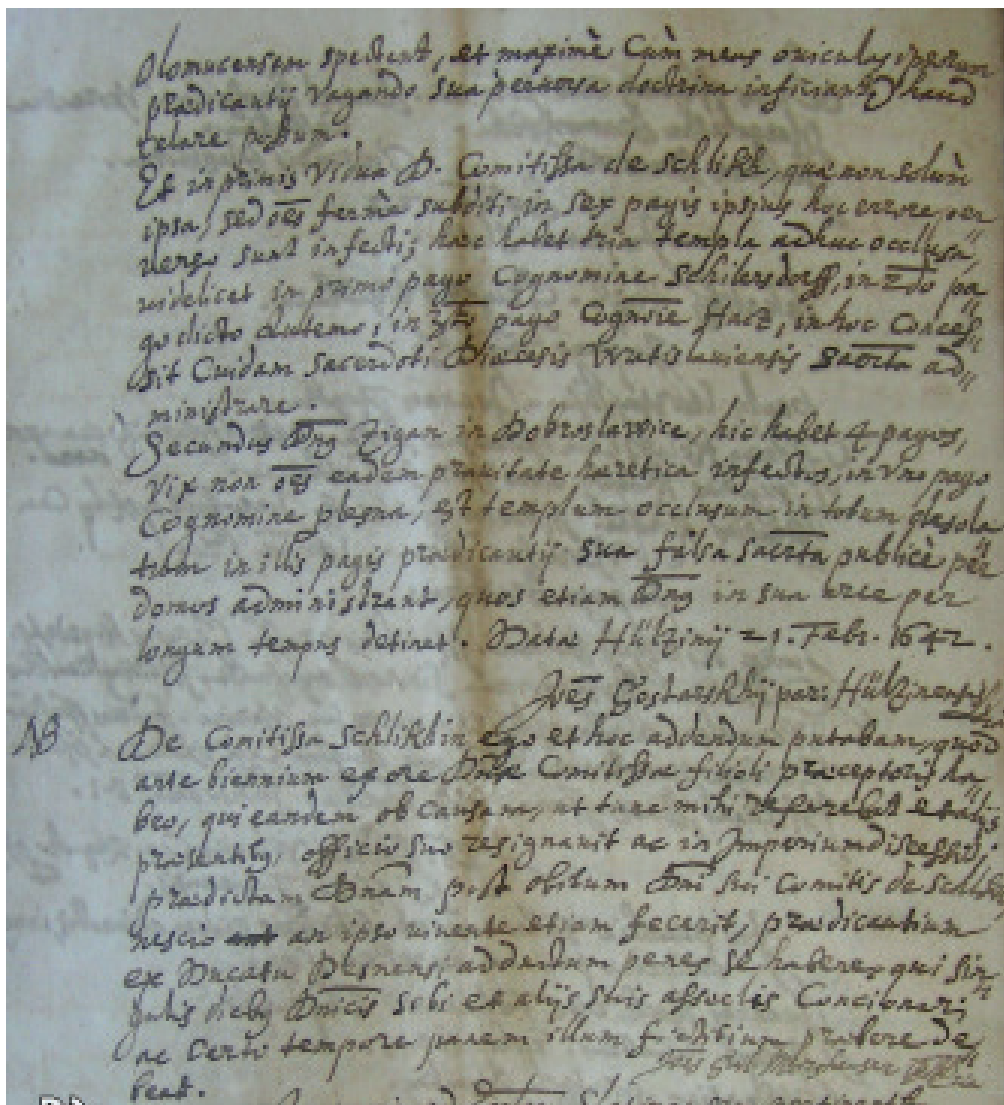 Olomucensem spectent, et maximè Cùm meas oviculas iporum
prædicantij Vagando sua perversa doctrina inficiant, haud
celare possum.
Et inprimis Vidua D. Comitissa de Schlikh, quæ non solùm
ipsa, sed oēs fermè subditi in sex pagis ipsius hoc errore per
verso sunt infecti; hæc habet tria templa adhuc occlusa,
videlicet in primo pago Cognomine Schilersdorff, in 2do pa
go dicto Antemo; in 3tio pago Cognoīe Hacz, in hoc Conces
sit Cuidam Sacerdoti Diocesis Vratislaviensis Sacrta ad
ministrare.
Secundus Dn̄s Zigan in Dobroslawice, hic habet 4 pagos,
Vix non oēs eadem pravitate hæretica infectos, in uno pago
Cognomine plesna, est templum occlusum in totum desola
tum in illis pagis prædicantij sua falsa Sacrta publicè per
domos administrant, quos etiam Dn̄s in sua arce per
longum tempus detinet. Data Hülzinij 21. Febr. 1642.
Joēs par: Hülzinensis
NB De Comitissa Schlikhin ego et hoc addendum putabam, quod
ante biennium ex ore Dn̄æ Comitissæ filioli præceptoris ha
beo, qui eandem ob Causam, ut tunc mihi referebat et alijs
præsentibus, officio suo resignavit ac in Imperium discessit,
prædictam Dn̄am post obitum Dn̄i sui Comitis de Schlikh
nescio an ipso vivente etiam fecerit, prædicantium
ex Ducatu adductum penes se habere, qui sin
gulis diebus Dn̄icis sibi et alijs suis asseclis Concionari
ac Certo tempore panem illum fictitium præbere de
beat.